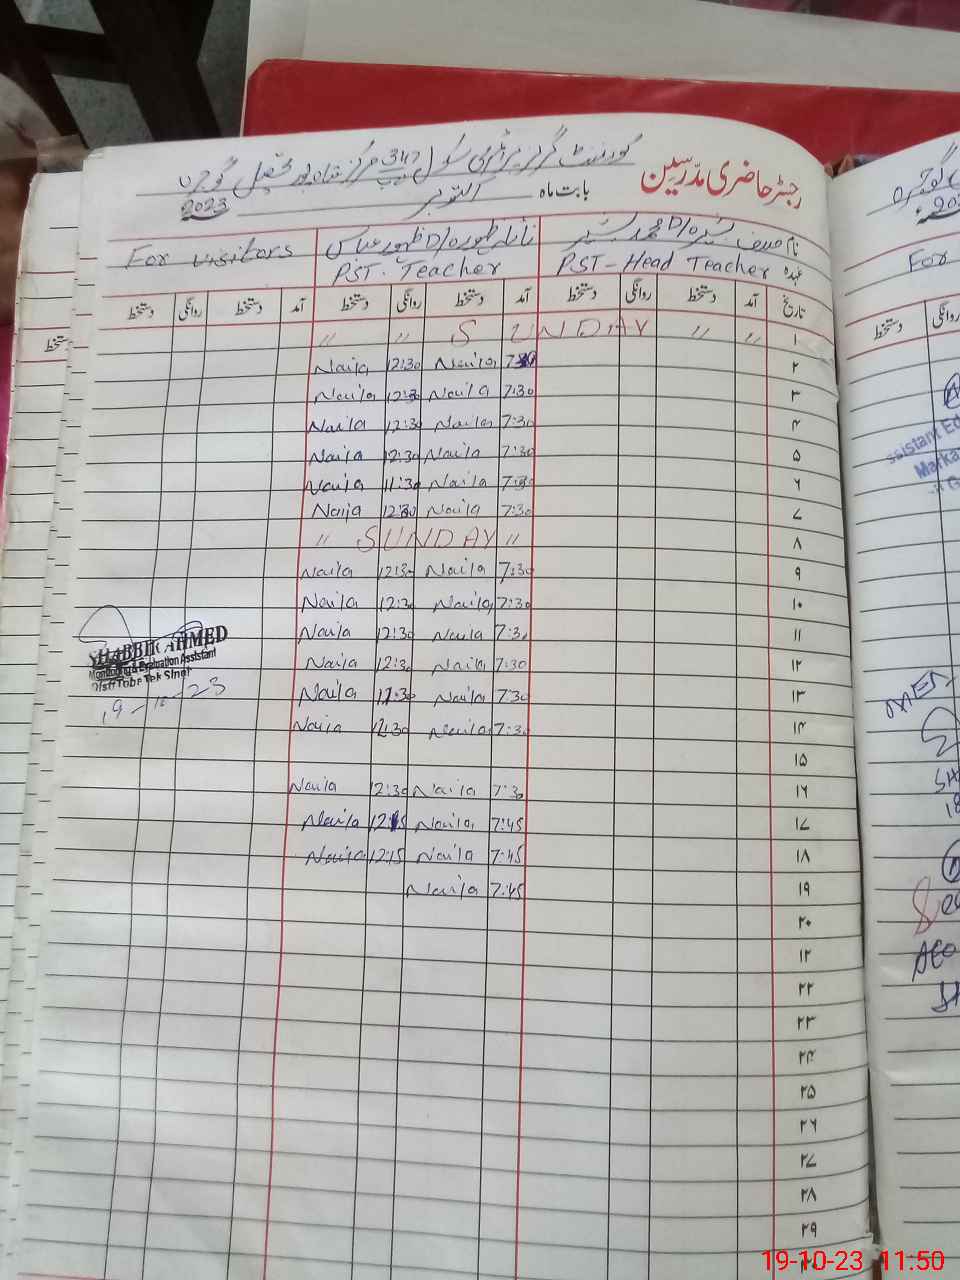 رجسٹر حاضری مدرسین
گورنمنٹ گرلز پرائمری سکول 347 مرکز شاہ پور تحصیل گوجرہ
بابت ماہ اکتوبر 2023
نام
نائلہ ظہور D/o ظہور عباس
For visitors
عہدہ PST-Head Teacher
PST. Teacher
تاریخ آمد دستخط روانگی دستخط آمد دستخط روانگی دستخط آمد دستخط روانگی دستخط
۱ " " SUNDAY " "
۲ 7:30 Naila 12:30 Naila
۳ 7:30 Naila 12:30 Naila
۴ 7:30 Naila 12:30 Naila
۵ 7:30 Naila 12:30 Naila
۶ 7:30 Naila 11:30 Naila
۷ 7:30 Naila 12:30 Naila
۸ " SUNDAY "
۹ 7:30 Naila 12:30 Naila
۱۰ 7:30 Naila 12:30 Naila
۱۱ 7:30 Naila 12:30 Naila
۱۲ 7:30 Naila 12:30 Naila
۱۳ 7:30 Naila 11:30 Naila
۱۴ 7:30 Naila 12:30 Naila
۱۵
۱۶ 7:30 Naila 12:30 Naila
۱۷ 7:45 Naila 12:15 Naila
۱۸ 7:45 Naila 12:15 Naila
۱۹ 7:45 Naila
۲۰
۲۱
۲۲
۲۳
۲۴
۲۵
۲۶
۲۷
۲۸
۲۹
SHABBIR AHMED
Monitoring & Evaluation Assistant
Distt Toba Tek Singh
19-10-23
For
دستخط روانگی
19-10-23 11:50